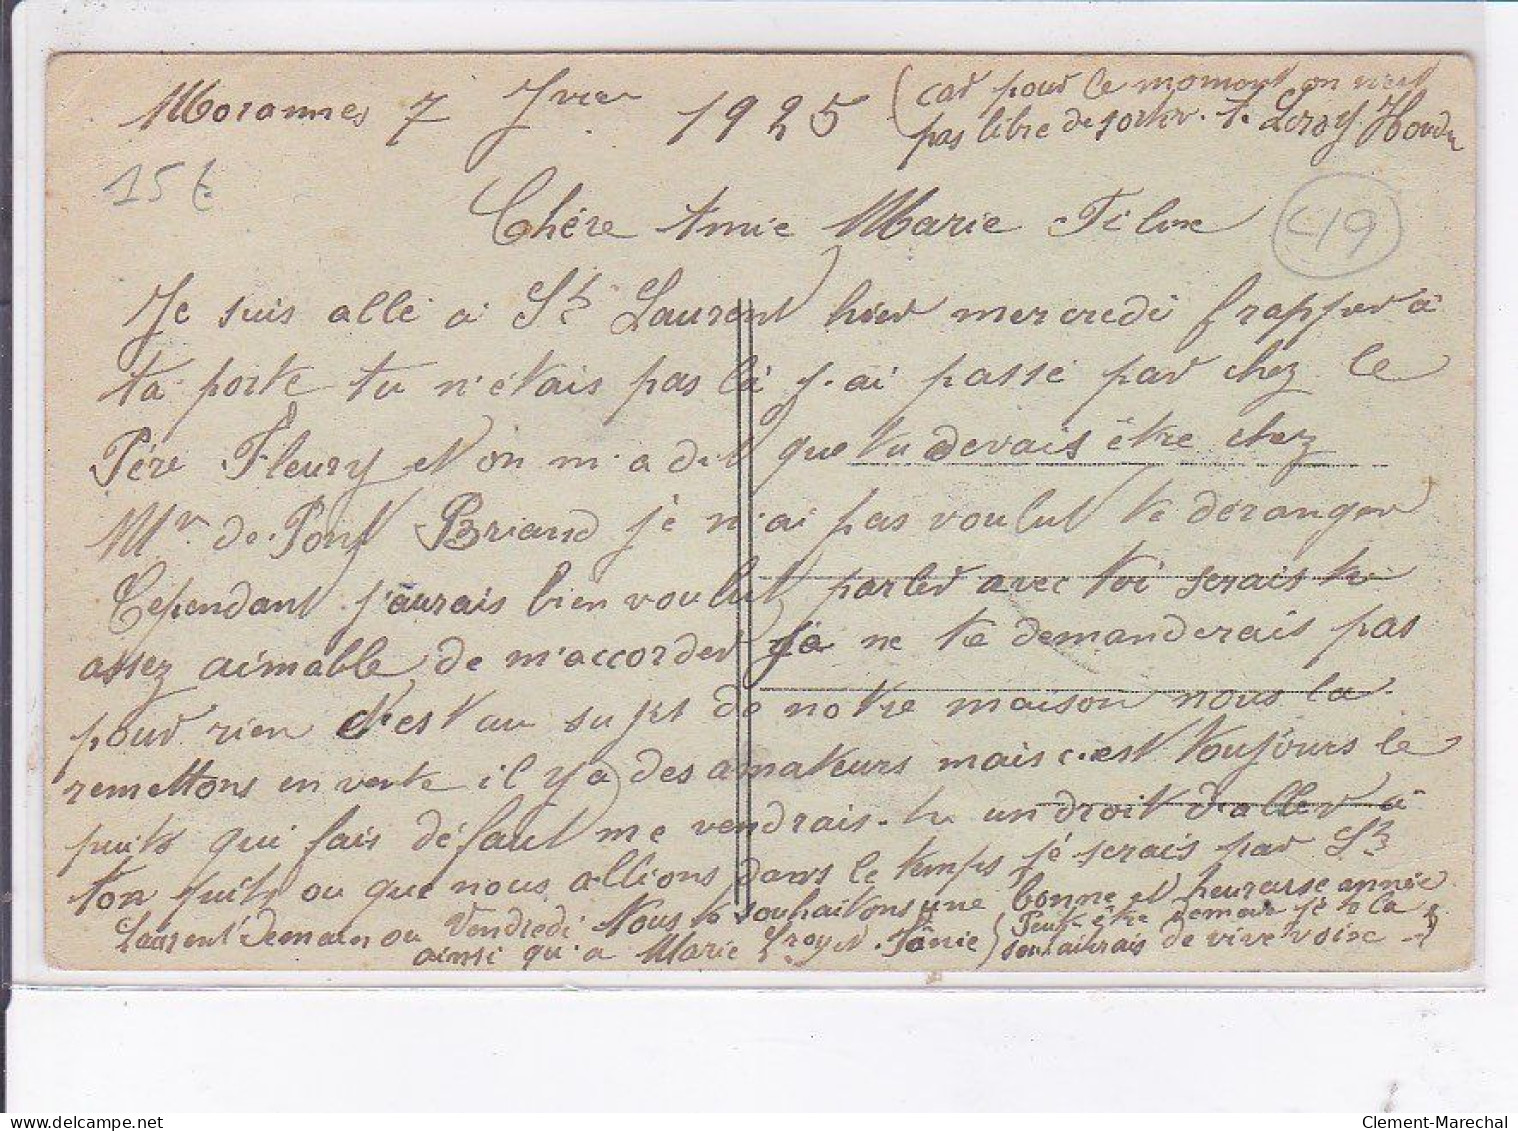 Morannes 7 Jvier 1925
(car pour le moment on n'est
pas libre de sortir. A. Leroy Houdu
15 €
49
Chère Amie Marie
Je suis allé a St Laurent hier mercredi frapper à
ta porte tu n'étais pas là j'ai passé par chez le
Père Fleury et on m'a dit que tu devais être chez
Mr de Pont Briand je n'ai pas voulut te déranger
Cependant j'aurais bien voulut parler avec toi serais tu
assez aimable de m'accorder ça ne te demanderais pas
pour rien c'est au sujet de notre maison nous la
remettons en vente il y a des amateurs mais c'est toujours le
puits qui fais défaut me vendrais-tu un droit d'aller à
ton puits ou que nous allions dans le temps je serais par St
Laurent demain ou Vendredi Nous te souhaitons une bonne et heureuse année
ainsi qu'a Marie Leroy et Fânie } Peut-être demain je te la
souhaiterais de vive voix
Clement-Marechal
delcampe.net